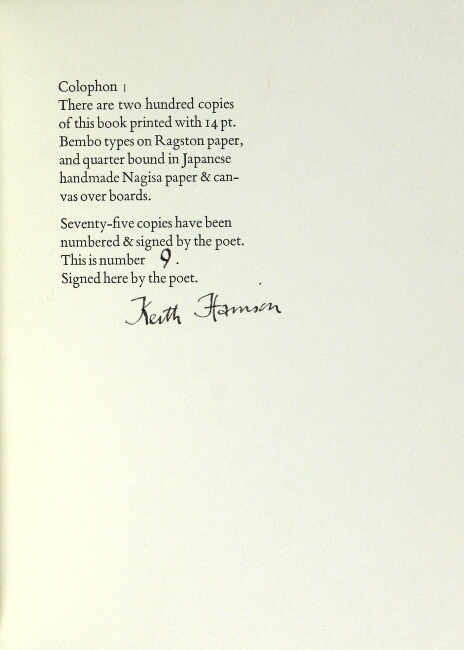 Colophon |
There are two hundred copies
of this book printed with 14 pt.
Bembo types on Ragston paper,
and quarter bound in Japanese
handmade Nagisa paper & can-
vas over boards.
Seventy-five copies have been
numbered & signed by the poet.
This is number 9.
Signed here by the poet.
Keith